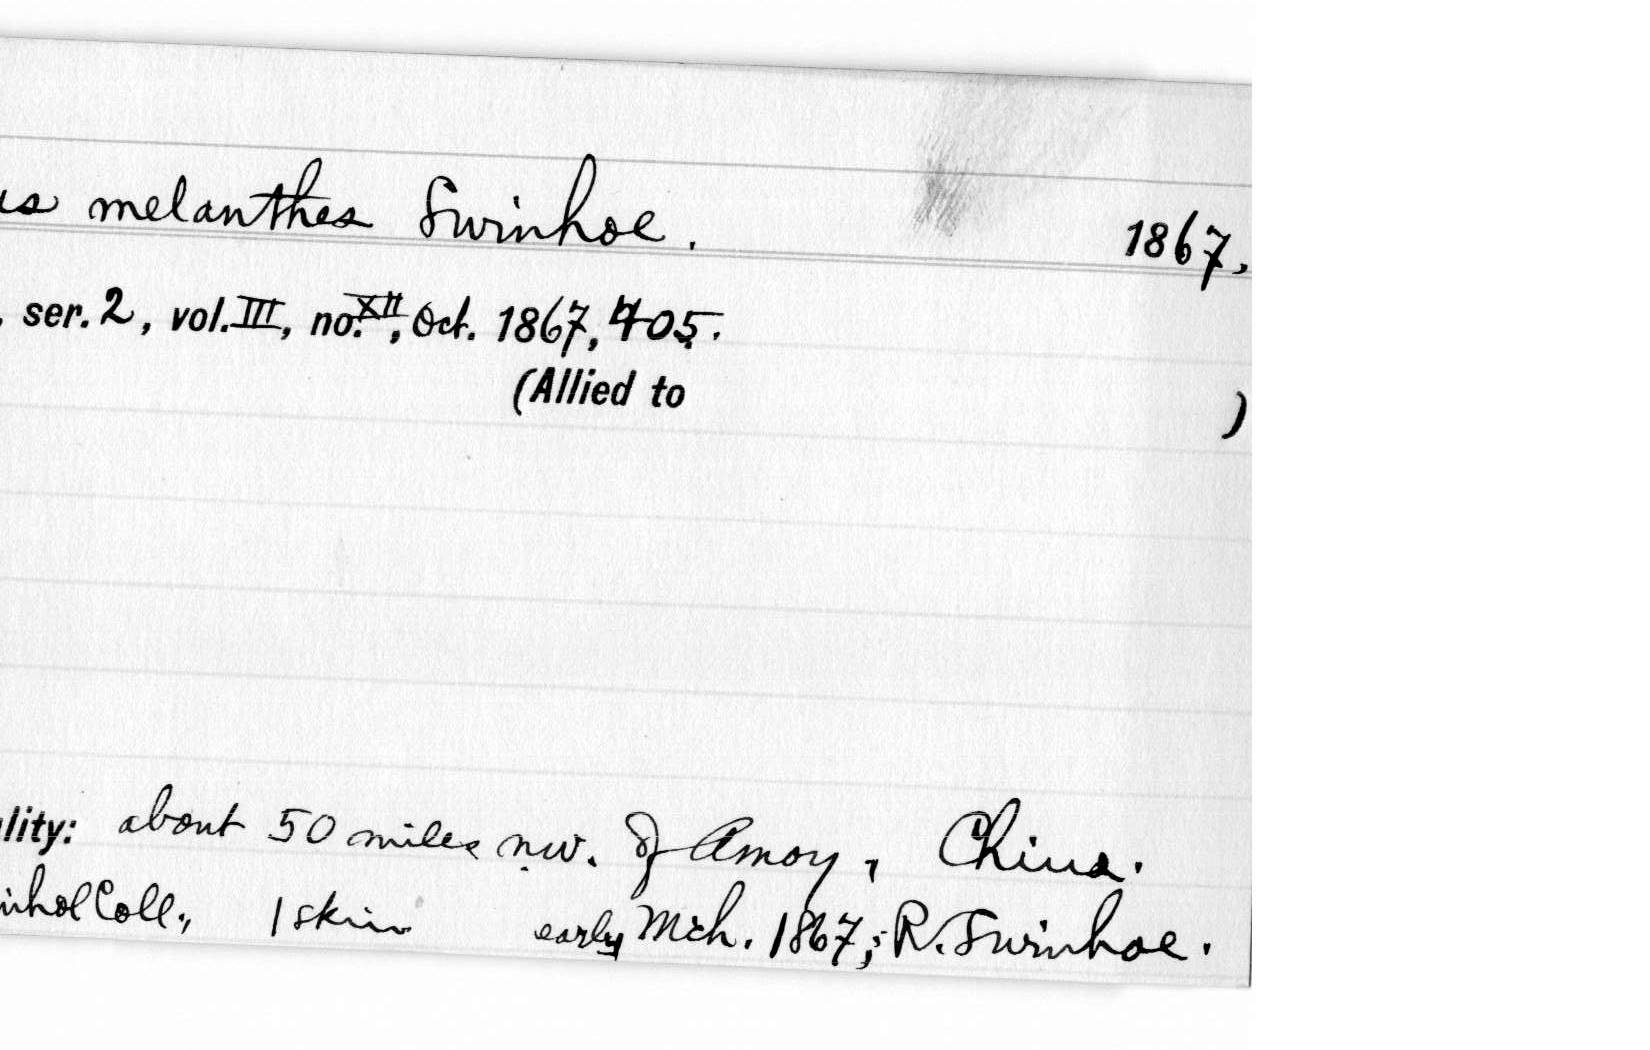 us melanthes Swinhoe. 1867,
, ser. 2, vol. III, no. XII, Oct. 1867, 405.
(Allied to )
lity: about 50 miles nw. of Amoy, China.
inhoe Coll., 1 skin early Mch. 1867; R. Swinhoe.